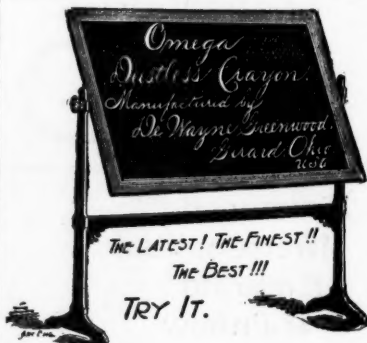 Omega
Dustless Crayon.
Manufactured by
De Wayne Greenwood.
Girard, Ohio
U.S.
THE LATEST! THE FINEST!!
THE BEST!!!
TRY IT.